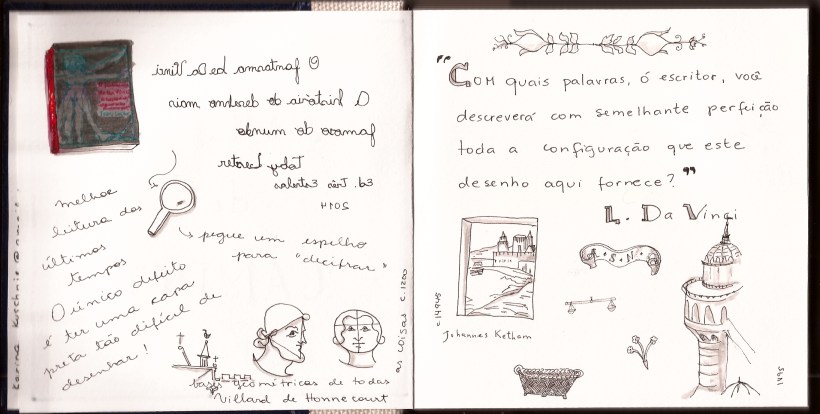 O fantasma de Da Vinci
A história do desenho mais
famoso do mundo
Toby Lester
ed. Três Estrelas
2014
melhor
leitura dos
últimos
tempos
pegue um espelho
para "decifrar"
O único defeito
é ter uma capa
preta tão difícil de
desenhar!
bases geométricas de todas
as coisas c.1200
Villard de Honnecourt
"Com quais palavras, ó escritor, você
descreverá com semelhante perfeição
toda a configuração que este
desenho aqui fornece?"
L. Da Vinci
Johannes Ketham